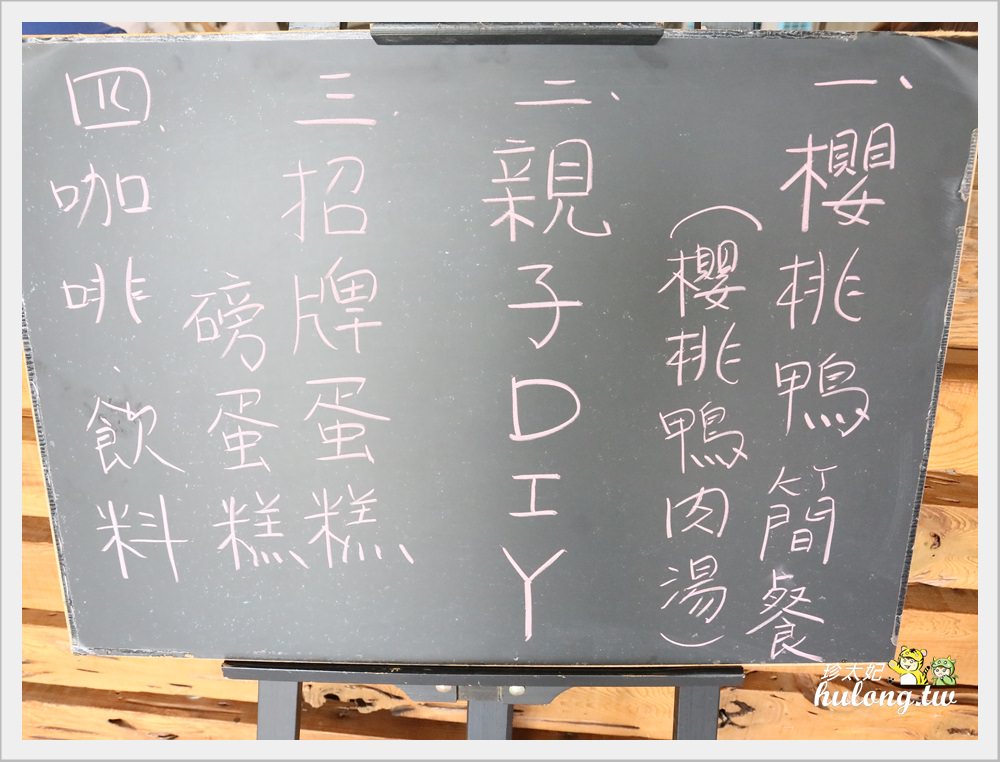 一、櫻桃鴨簡餐
(櫻桃鴨肉湯)
二、親子DIY
三、招牌蛋糕、
磅蛋糕
四、咖啡、飲料
珍太妃
hulong.tw